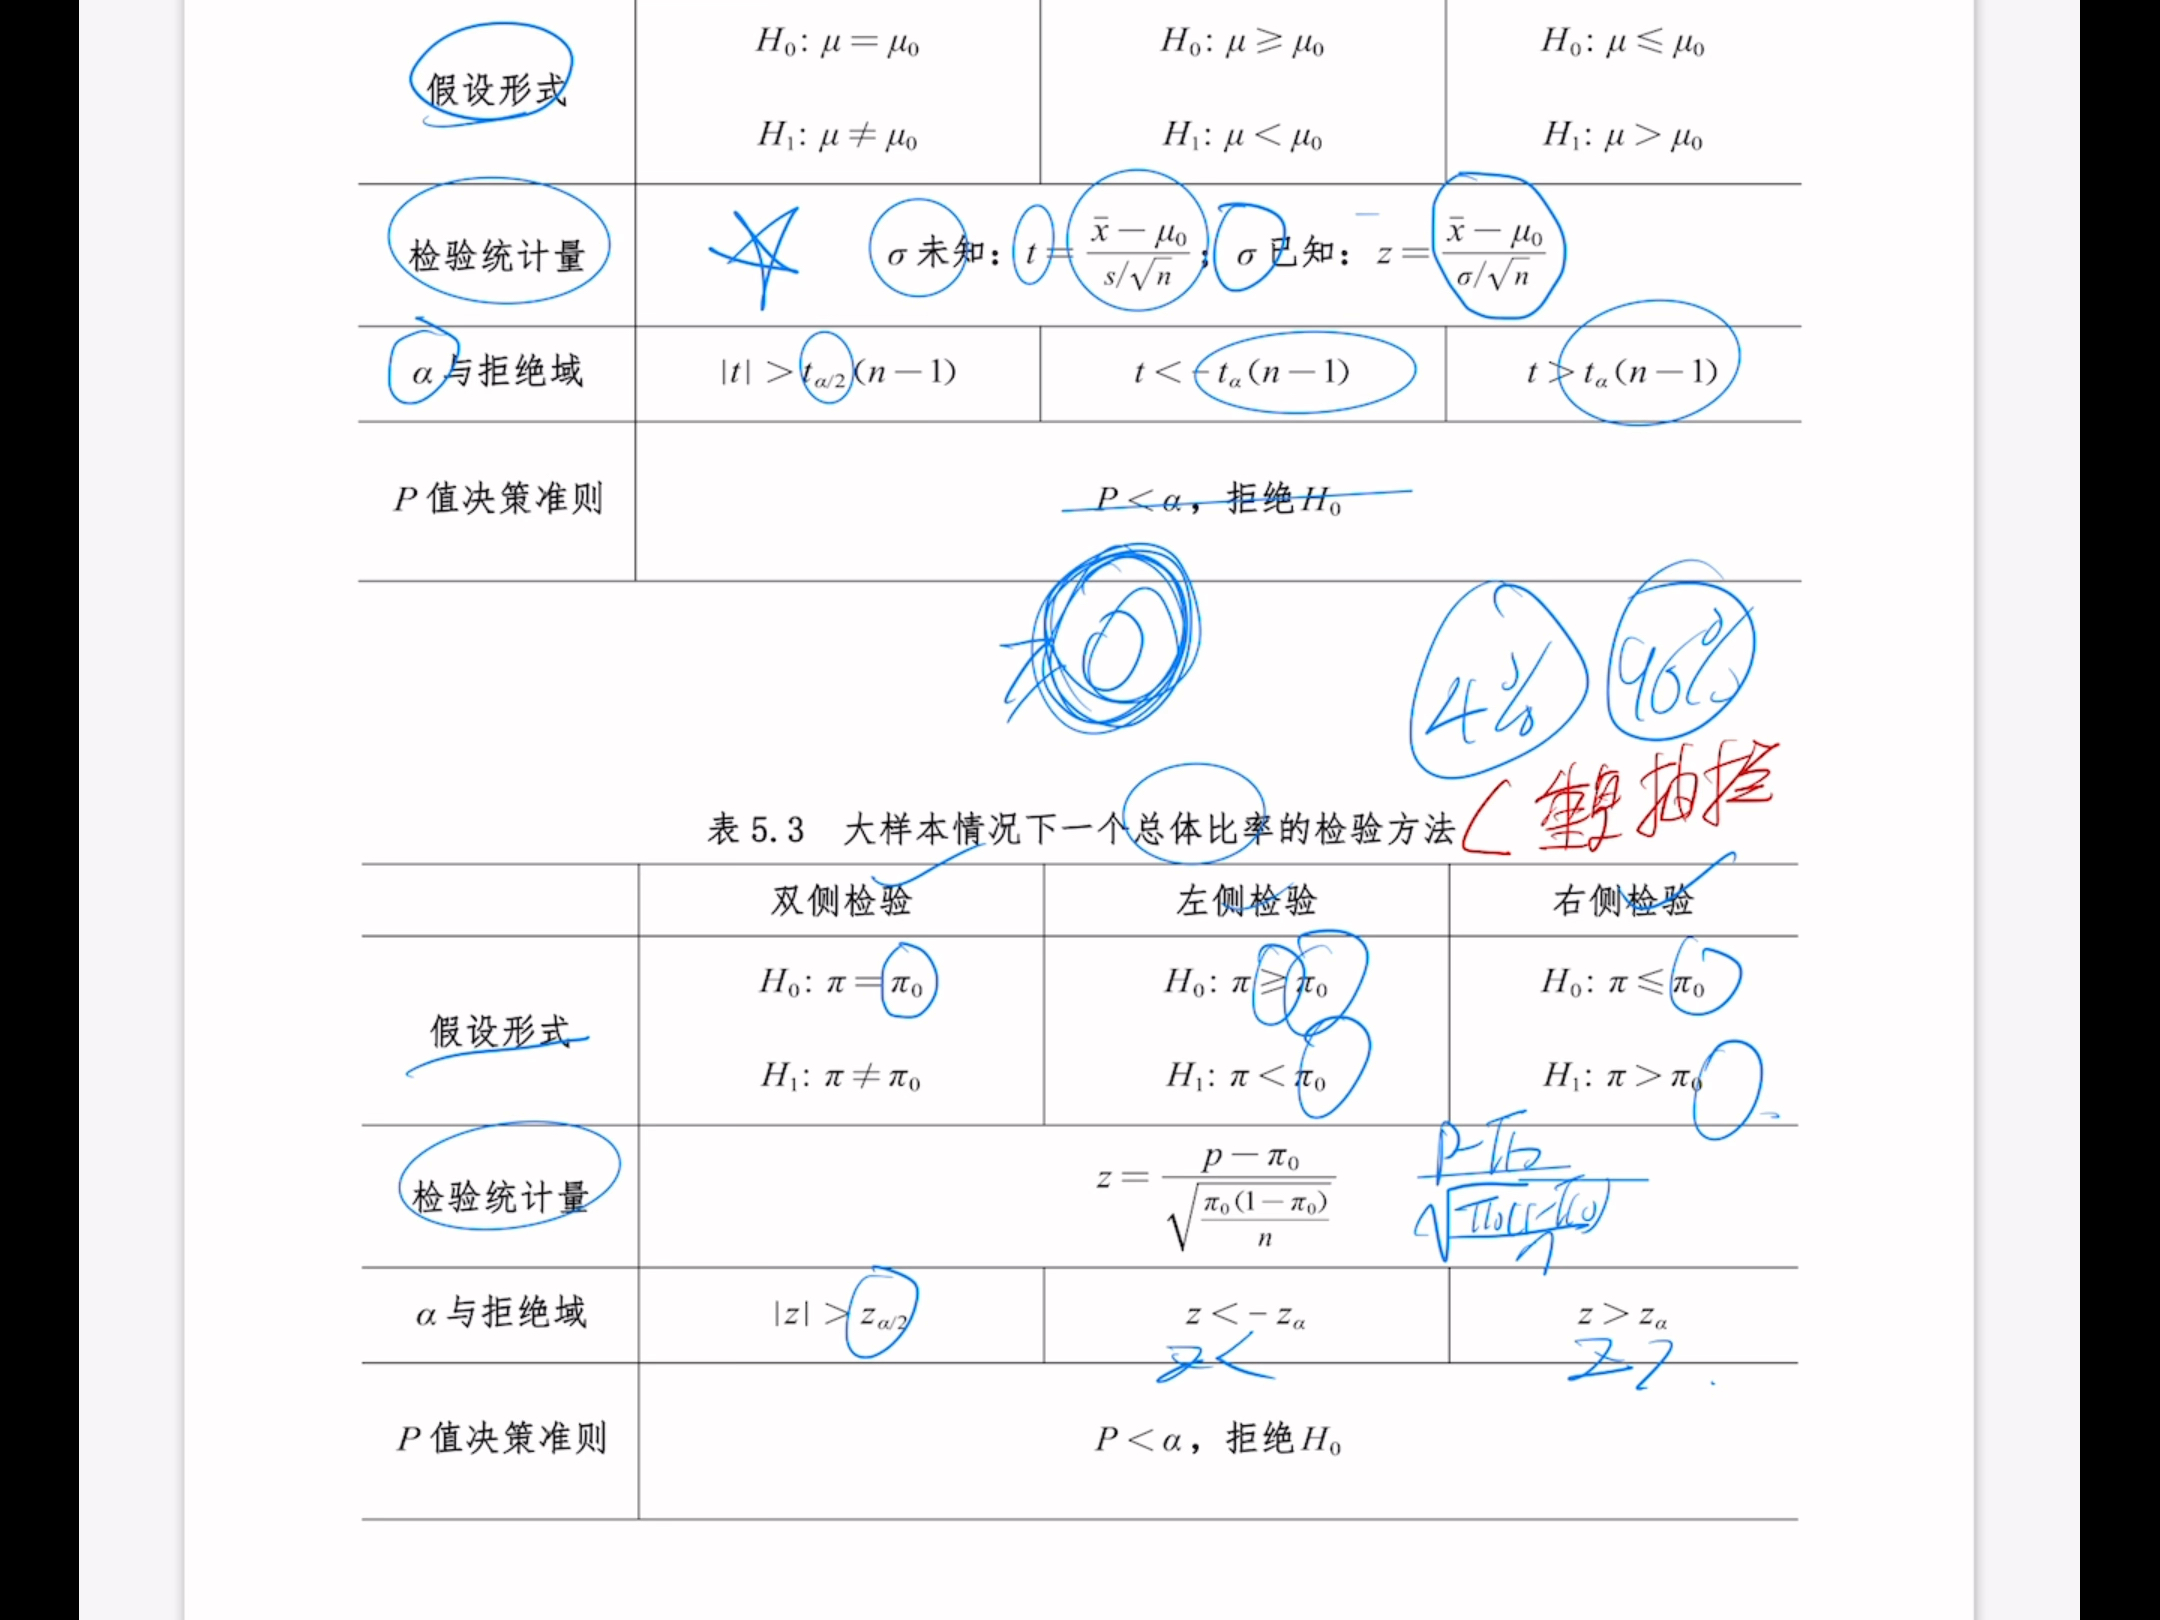 H₀: μ = μ₀ H₀: μ ≥ μ₀ H₀: μ ≤ μ₀
假设形式
H₁: μ ≠ μ₀ H₁: μ < μ₀ H₁: μ > μ₀
检验统计量 σ 未知: t = (x̄ − μ₀)/(s/√n); σ 已知: z = (x̄ − μ₀)/(σ/√n)
α 与拒绝域 |t| > t_{α/2}(n − 1) t < − t_α(n − 1) t > t_α(n − 1)
P 值决策准则 P < α, 拒绝 H₀
4% 96%
表 5.3 大样本情况下一个总体比率的检验方法 (重复抽样
双侧检验 左侧检验 右侧检验
H₀: π = π₀ H₀: π ≥ π₀ H₀: π ≤ π₀
假设形式
H₁: π ≠ π₀ H₁: π < π₀ H₁: π > π₀
检验统计量 z = (p − π₀)/√(π₀(1 − π₀)/n) (p − π₀)/√(π₀(1 − π₀)/n)
α 与拒绝域 |z| > z_{α/2} z < − z_α z > z_α
z < z >
P 值决策准则 P < α, 拒绝 H₀